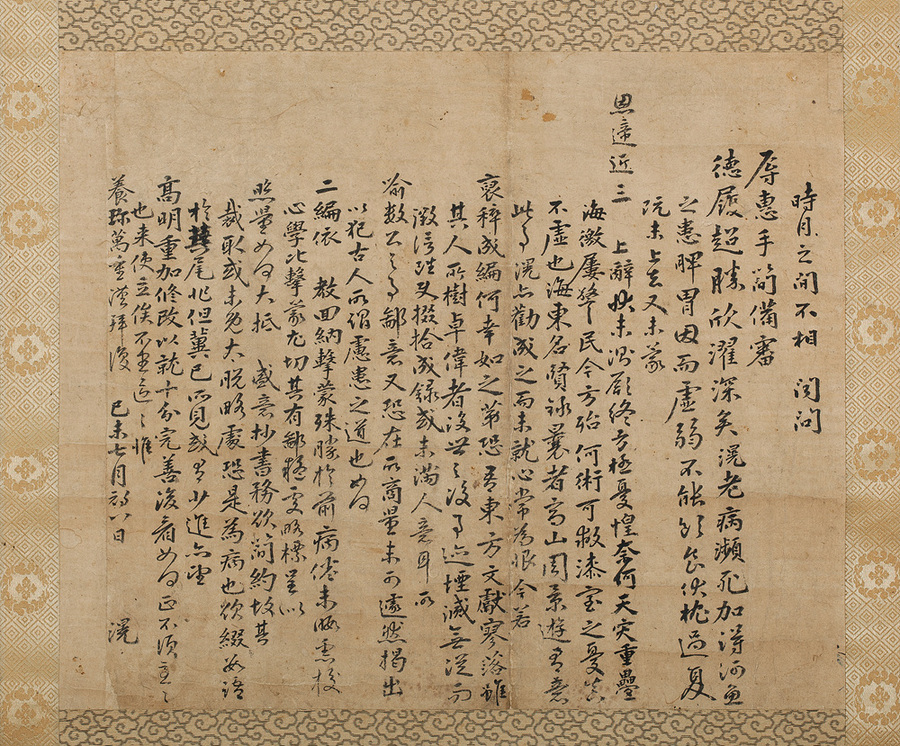 時月之間不相 聞問
辱惠手簡備審
德履超勝欣濯深矣滉老病瀕死加得河魚
之患脾胃因而虛弱不能飲食伏枕過夏
既未上去又未蒙
恩遞近三 上辭狀未得願終方極憂惶奈何天灾重疊
海徼屢聳民今方殆何術可救漆室之憂
不虛也海東名賢錄曩者高山周景遊有意
此事滉亦勸成之而未就心常爲恨今若
裒稡成編何幸如之第恐吾東方文獻寥落雖
其人所樹卓偉者沒世之後事迹堙滅無從而
徵信雖 掇拾成錄或未滿人意耳所
喩數公之事鄙意又恐在所商量未可遽然揭出
以犯古人所謂 患之道也如何
二編依 教回納擊蒙殊勝於前病倦未暇悉校
心學比擊蒙尤切其有鄙 處略標呈以
照量如何大抵 盛意抄書務欲簡約故其
裁取或未免太脫略處恐是爲病也欲綴數語
於其尾非但冀已所見或有少進亦望
高明重加修改以就十分完善後看如何正不須急急
也來使立俟不盡區區惟
養珎萬重謹拜復 己未七月初八日 滉